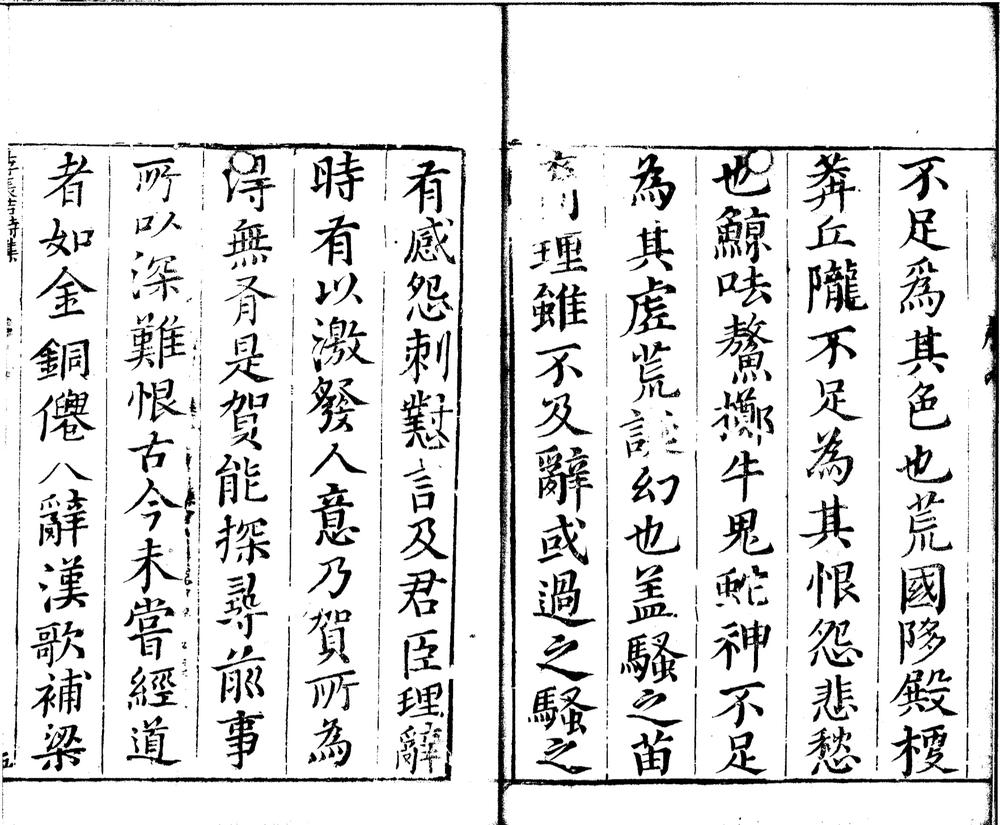 不足爲其色也荒國陊殿梗
莽丘隴不足為其恨怨悲愁
也鯨呿鼇擲牛鬼蛇神不足
為其虛荒誕幻也盖騷之苗
裔理雖不及辭或過之騷之
有感怨刺懟言及君臣理辭
時有以激發人意乃賀所為
得無有是賀能探尋前事
所以深難恨古今未嘗經道
者如金銅僊人辭漢歌補梁
五